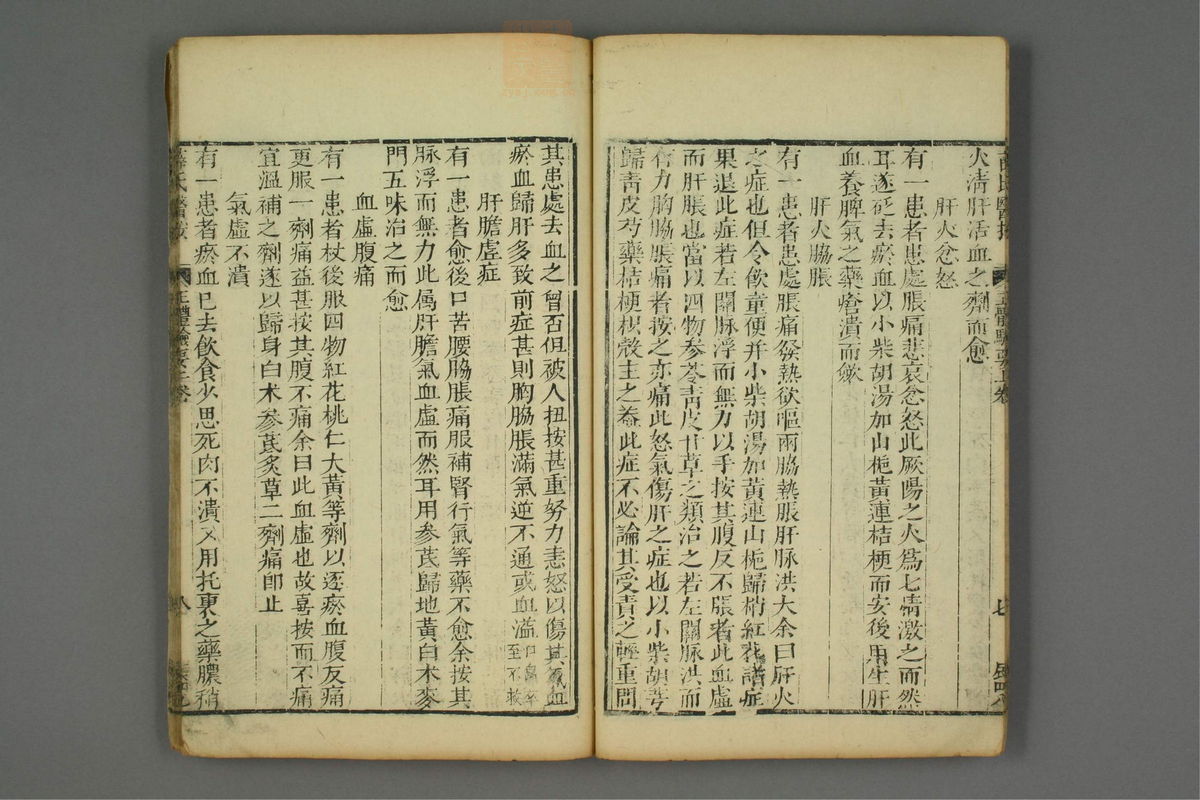 火清肝活血之劑而愈
肝火忿怒
有一患者患處脹痛悲哀忿怒此厥陽之火爲七情激之而然
耳遂砭去瘀血以小柴胡湯加山梔黃連桔梗而安後用生肝
血養脾氣之藥瘡潰而斂
肝火脇脹
有一患者患處脹痛發熱欲嘔兩脇熱脹肝脉洪大余曰肝火
之症也但令飲童便并小柴胡湯加黃連山梔歸梢紅花諸症
果退此症若左關脉浮而無力以手按其腹反不脹者此血虛
而肝脹也當以四物參苓青皮甘草之類治之若左關脉洪而
有力胸脇脹痛者按之亦痛此怒氣傷肝之症也以小柴胡芎
歸青皮芍藥桔梗枳殼主之葢此症不必論其受責之輕重問
其患處去血之曾否但被人扭按甚重努力恚怒以傷其氣血
瘀血歸肝多致前症甚則胸脇脹滿氣逆不通或血溢口鼻卒至不救
肝膽虛症
有一患者愈後口苦腰脇脹痛服補腎行氣等藥不愈余按其
脉浮而無力此属肝膽氣血虛而然耳用參芪歸地黃白术麥
門五味治之而愈
血虛腹痛
有一患者杖後服四物紅花桃仁大黃等劑以逐瘀血腹反痛
更服一劑痛益甚按其腹不痛余曰此血虛也故喜按而不痛
宜溫補之劑遂以歸身白术參芪炙草二劑痛即止
氣虛不潰
有一患者瘀血已去飲食少思死肉不潰又用托裏之藥膿稍
薛氏醫按 正體類要上卷 八